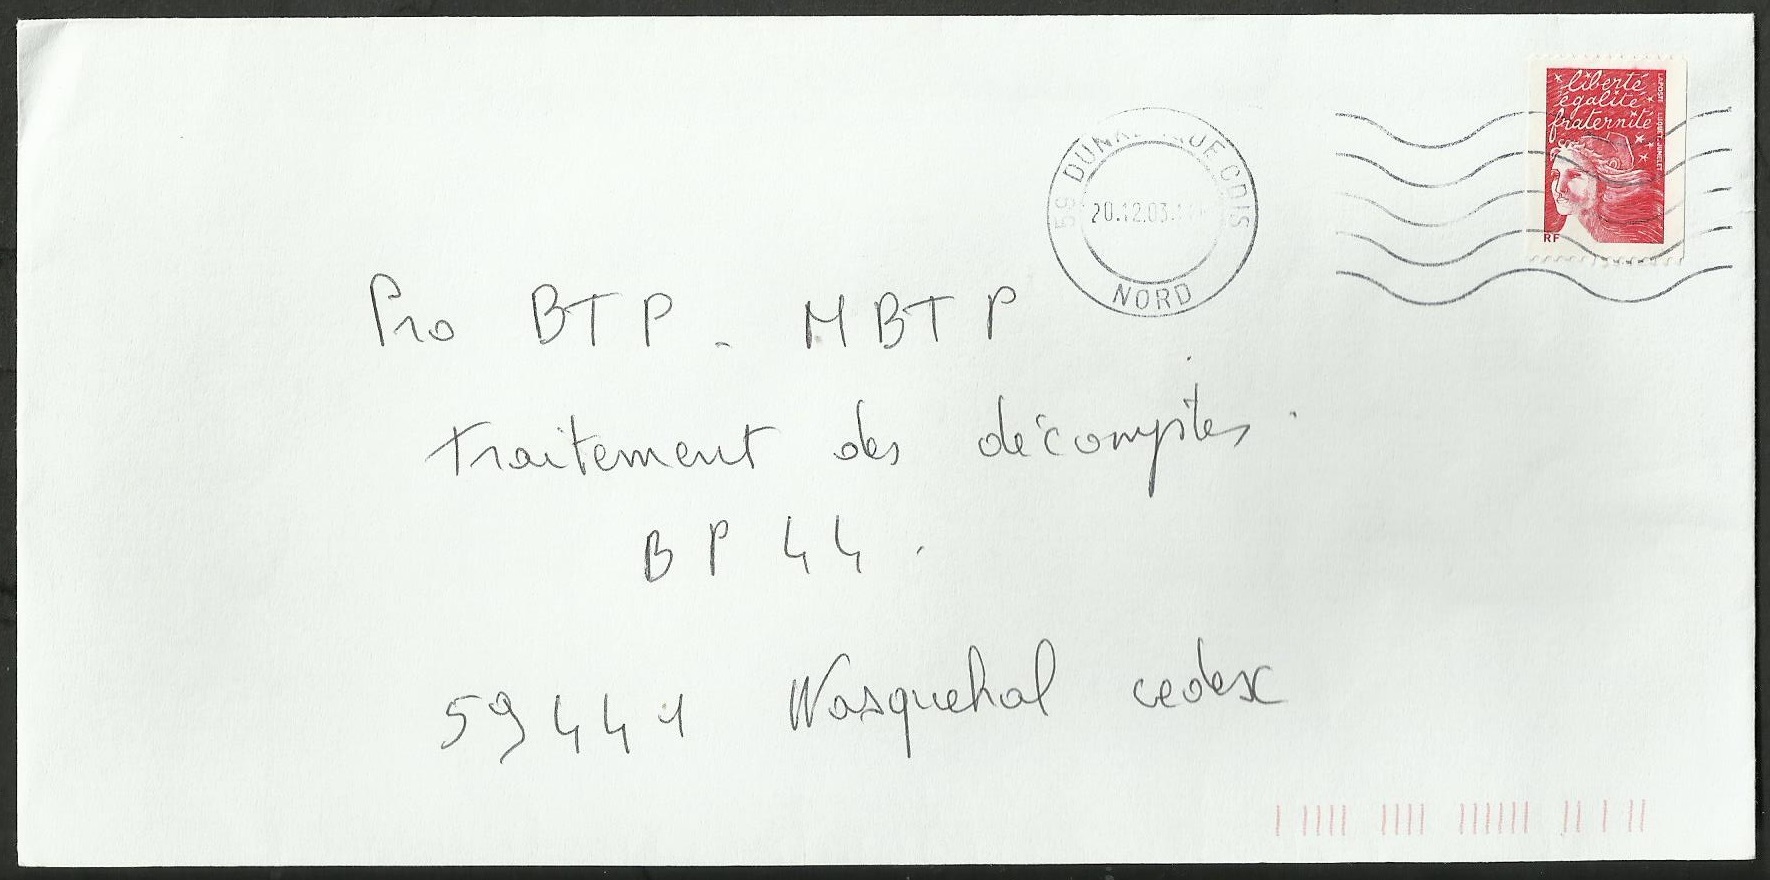 liberté
égalité
fraternité
LA POSTE
RF
59 CDIS
20.12.03
NORD
Pro BTP - MBTP
traitement des décomptes
BP 44
59441 Wasquehal cedex